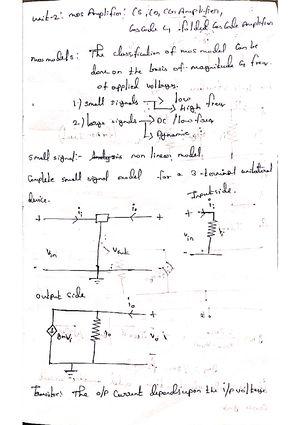 unit-2: mos Amplifier: CS, CD, CG Amplifier,
Cascade & folded Cascade Amplifier
mos models: The classification of mos model can be
done on the basis of magnitude & freq.
of applied voltages.
1.) small signals → low
→ high freq
2.) large signals → DC / low freq
→ Dynamic
small signal:- non linear model.
Complete small signal model for a 3-terminal unilateral
device.
Input side:
+ i + + i
Vin Vout Vin
- -
output side
io +
gmVi ro Vo
-
Transistor: The o/p current depends upon the i/p voltage